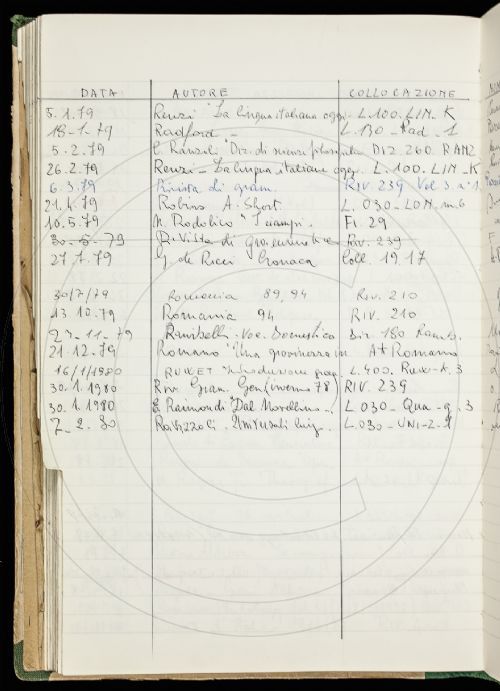 DATA AUTORE COLLOCAZIONE
5.1.79 Renzi "La lingua italiana oggi. L.100.LIN.K
18-1-79 Radford - L 130 - Rad. 1
5.2.79 E. Ranzoli Diz. di scienze DIZ 260. RANZ
26.2.79 Renzi - La lingua italiana oggi. L.100.LIN-K
6.3.79 Rivista di gram. RIV. 239 Vol 3 n°1
21.4.79 Robins A. Short L. 030 - LON. m6
10.5.79 N. Rodolico "I ciompi. FI 29
30-5-79 Rivista di grammatica Riv. 239
27.7.79 G. de Ricci Cronaca Coll. 19 17
30/7/79 Romania 89, 94 Riv. 210
13.12.79 Romania 94 RIV. 210
27-11-79 Voc. Domestico Diz. 180
21.12.79 Romano "Una At Romano
16/1/1980 RUWET Introduzione L. 400. Ruw-A. 3
30.1.1980 Riv. Gram. Gen/inverno 78 RIV. 239
30.1.1980 E. Raimondi "Dal Novellino.. L 030 - Qua-q. 3
7_2_80 Universali ling. L.030-UNI-2.1